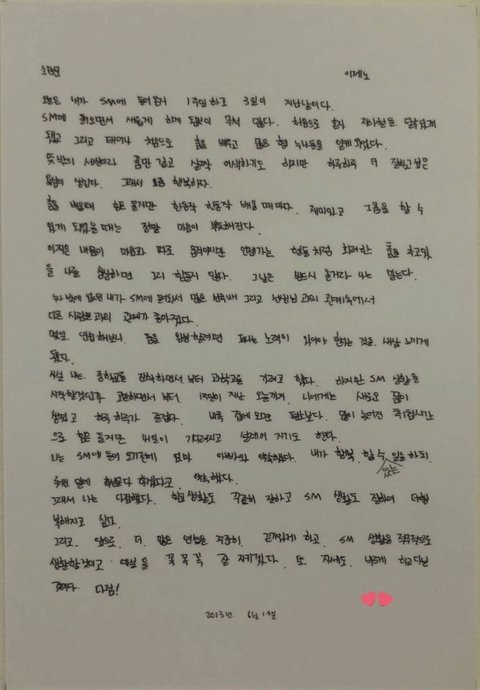 소감문 이제노
오늘은 내가 SM에 들어온지 1주일하고 3일이 지난날이다.
SM에 들어오면서 새롭게 하게 된것이 무척 많다. 처음으로 혼자 지하철을 타게
됐고 그리고 태어나 처음으로 춤을 배우고 많은 형 누나들을 알게되었다.
뜻밖의 세상이라 꿈만 같고 살짝 어색하기도 하지만 하루하루 더 잘하고 싶은
욕심이 생긴다. 그래서 요즘 행복하다.
춤을 배울때 힘은 들지만 한동작 한동작 배울때마다 재미있고 그 춤을 출 수
있게 되었을때는 정말 마음이 뿌듯해진다.
아직은 내몸이 마음과 따로 움직이지만 언젠가는 형들처럼 화려한 춤을 추고있
을 나를 상상하면 그리 힘들지 않다. 그날은 반드시 올거라 나는 믿는다.
내가 SM에 들어와서 많은 선후배 그리고 선생님과의 관계속에서
다른 사람들과의 관계가 좋아졌다.
몇일 연습해보니 춤을 잘할려면 피나는 노력이 있어야 한다는 것을 새삼 느끼게
됐다.
사실 나는 중학교를 진학하면서부터 과학고를 가려고 했다. 하지만 SM 생활을
시작한것인가 고민하면서부터 1주일이 지난 오늘까지 나에게는 새로운 꿈이
생겼고 하루 하루가 즐겁다. 비록 집에오면 피곤하다. 많이 늦어진 귀가시간
으로 힘은 들지만 내일이 기다려지고 설레어 지기도 한다.
나는 SM에 들어 오기전에 엄마 아빠와 약속했다. 내가 할수 있는 일을 하되,
후회 없이 하겠다고 약속했다.
그래서 나는 다짐했다. 학교생활도 꾸준히 잘하고 SM 생활도 잘하며 더행
복해지고 싶다.
그리고, 앞으로, 더 많은 연습을 꾸준히 끈기있게 하고, SM 생활을 적극적으로
생활할것이고 예의를 꼭 꼭 꼭 잘 지키겠다. 또, 자세도 바르게 하고다닐
것이다 다짐!
2013년 6월 1일